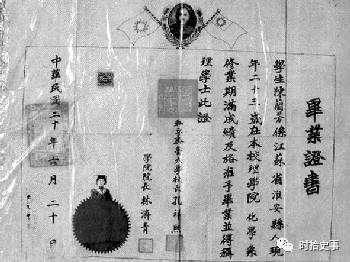 畢業證書
學生陳蘭係江蘇省淮安縣人現
年二十三歲在本校理學院化學系
修業期滿成績及格准予畢業並得稱
理學士此證
私立齊魯大學校長孔祥熙
學院院長林濟青
中華民國二十年六月二十日
时拾史事